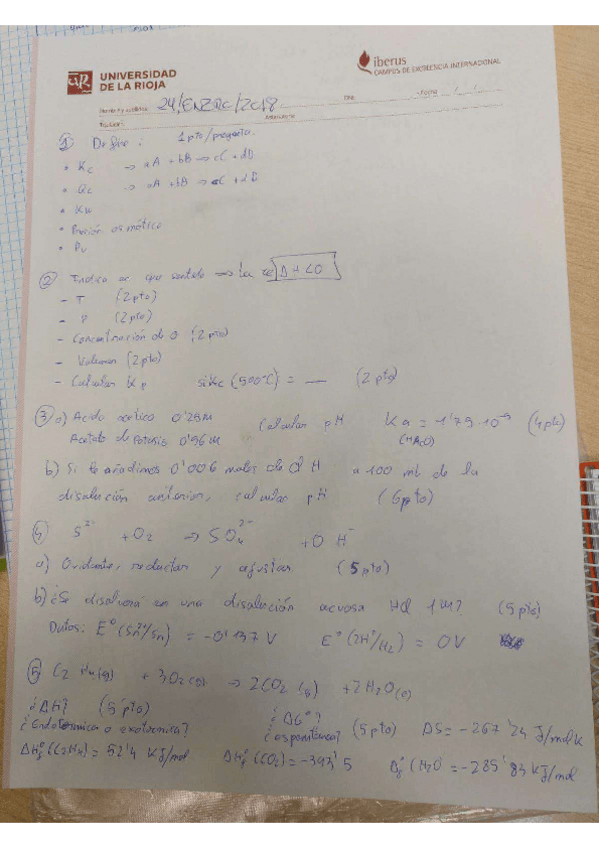 UNIVERSIDAD
DE LA RIOJA
iberus
CAMPUS DE EXCELENCIA INTERNACIONAL
Nombre y apellidos 24/ENERO/2018 Fecha / /
Titulación Asignatura
① Define: 1 pto/pregunta.
• Kc → aA + bB → cC + dD
• Qc → aA + bB → cC + dD
• Kw
• Presión osmótica
• Pv
② Indica en que sentido → la ΔH<0
- T (2 pto)
- P (2 pto)
- Concentración de O (2 pto)
- Volumen (2 pto)
- Calcular Kp si Kc (500°C) = — (2 pto)
③ a) Acido acético 0'28M Calcular pH Ka = 1'79·10⁻⁵ (4 pto)
Acetato de Potasio 0'96M (HAcO)
b) Si le añadimos 0'006 moles de Cl H a 100 ml de la
disolución anterior, calcular pH (5 pto)
④ S²⁻ + O₂ → SO₄²⁻ + O H⁻
a) Oxidante, reductor y ajustar (5 pto)
b) ¿Se disolverá en una disolución acuosa HCl 1M? (5 pto)
Datos: E° (Sn²⁺/Sn) = -0'137 V E° (2H⁺/H₂) = 0V
⑤ C₂ H₄ (g) + 3O₂ (g) → 2CO₂ (g) + 2H₂O (l)
¿ΔH? (5 pto) ¿ΔG°?
¿Endotermica o exotermica? ¿espontánea? (5 pto) ΔS = -267'24 J/mol k
ΔHf° (C₂H₄) = 52'4 KJ/mol ΔHf° (CO₂) = -393'5 Δf° (H₂O = -285'83 KJ/mol